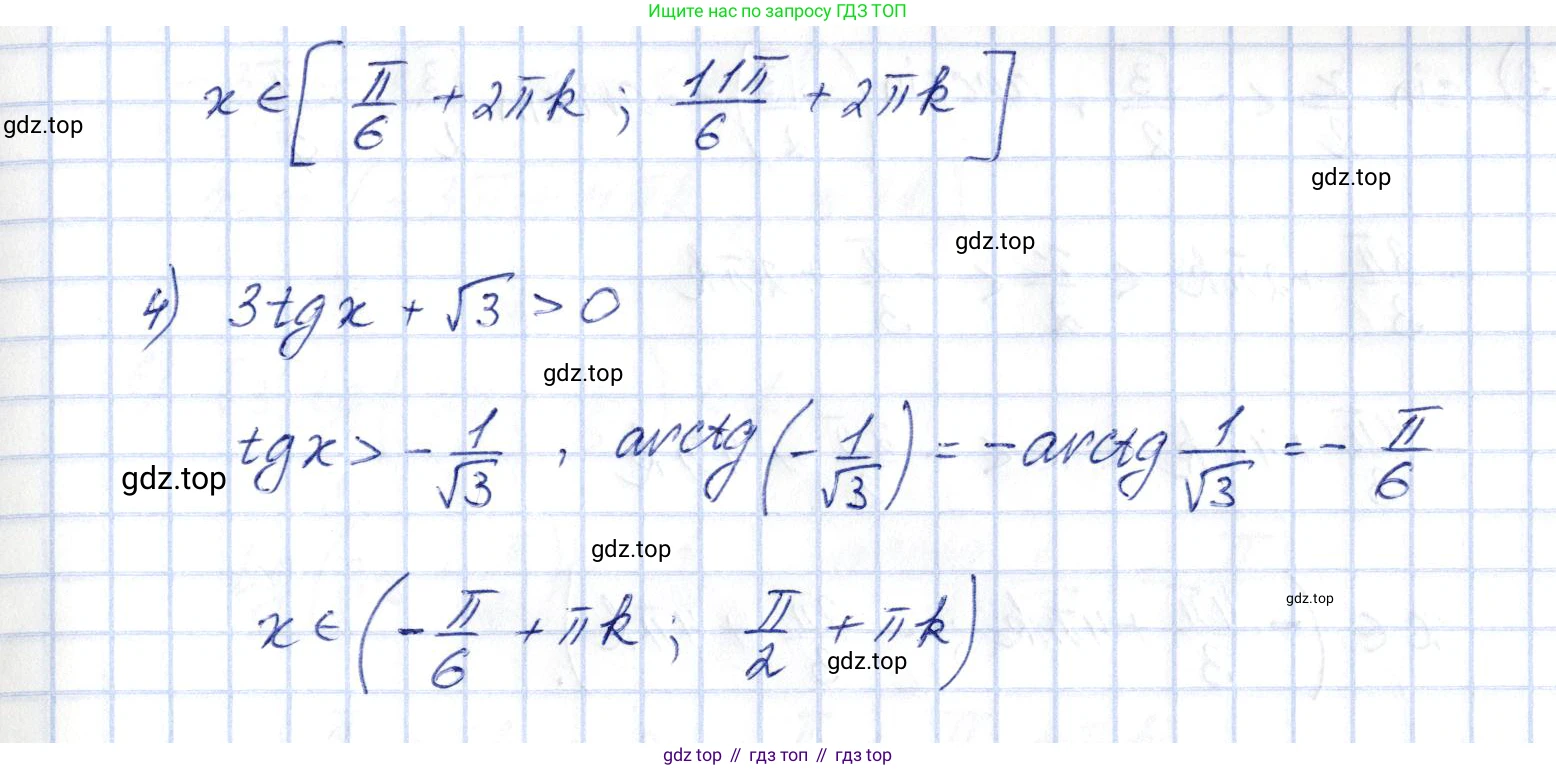 Ищите нас по запросу ГДЗ ТОП
x ∈ [π/6 + 2πk ; 11π/6 + 2πk]
gdz.top
gdz.top
gdz.top
4) 3tgx + √3 > 0
gdz.top
tgx > - 1/√3 , arctg(- 1/√3) = - arctg 1/√3 = - π/6
gdz.top
gdz.top
gdz.top
x ∈ (- π/6 + πk ; π/2 + πk)
gdz.top
gdz top // гдз топ // гдз top